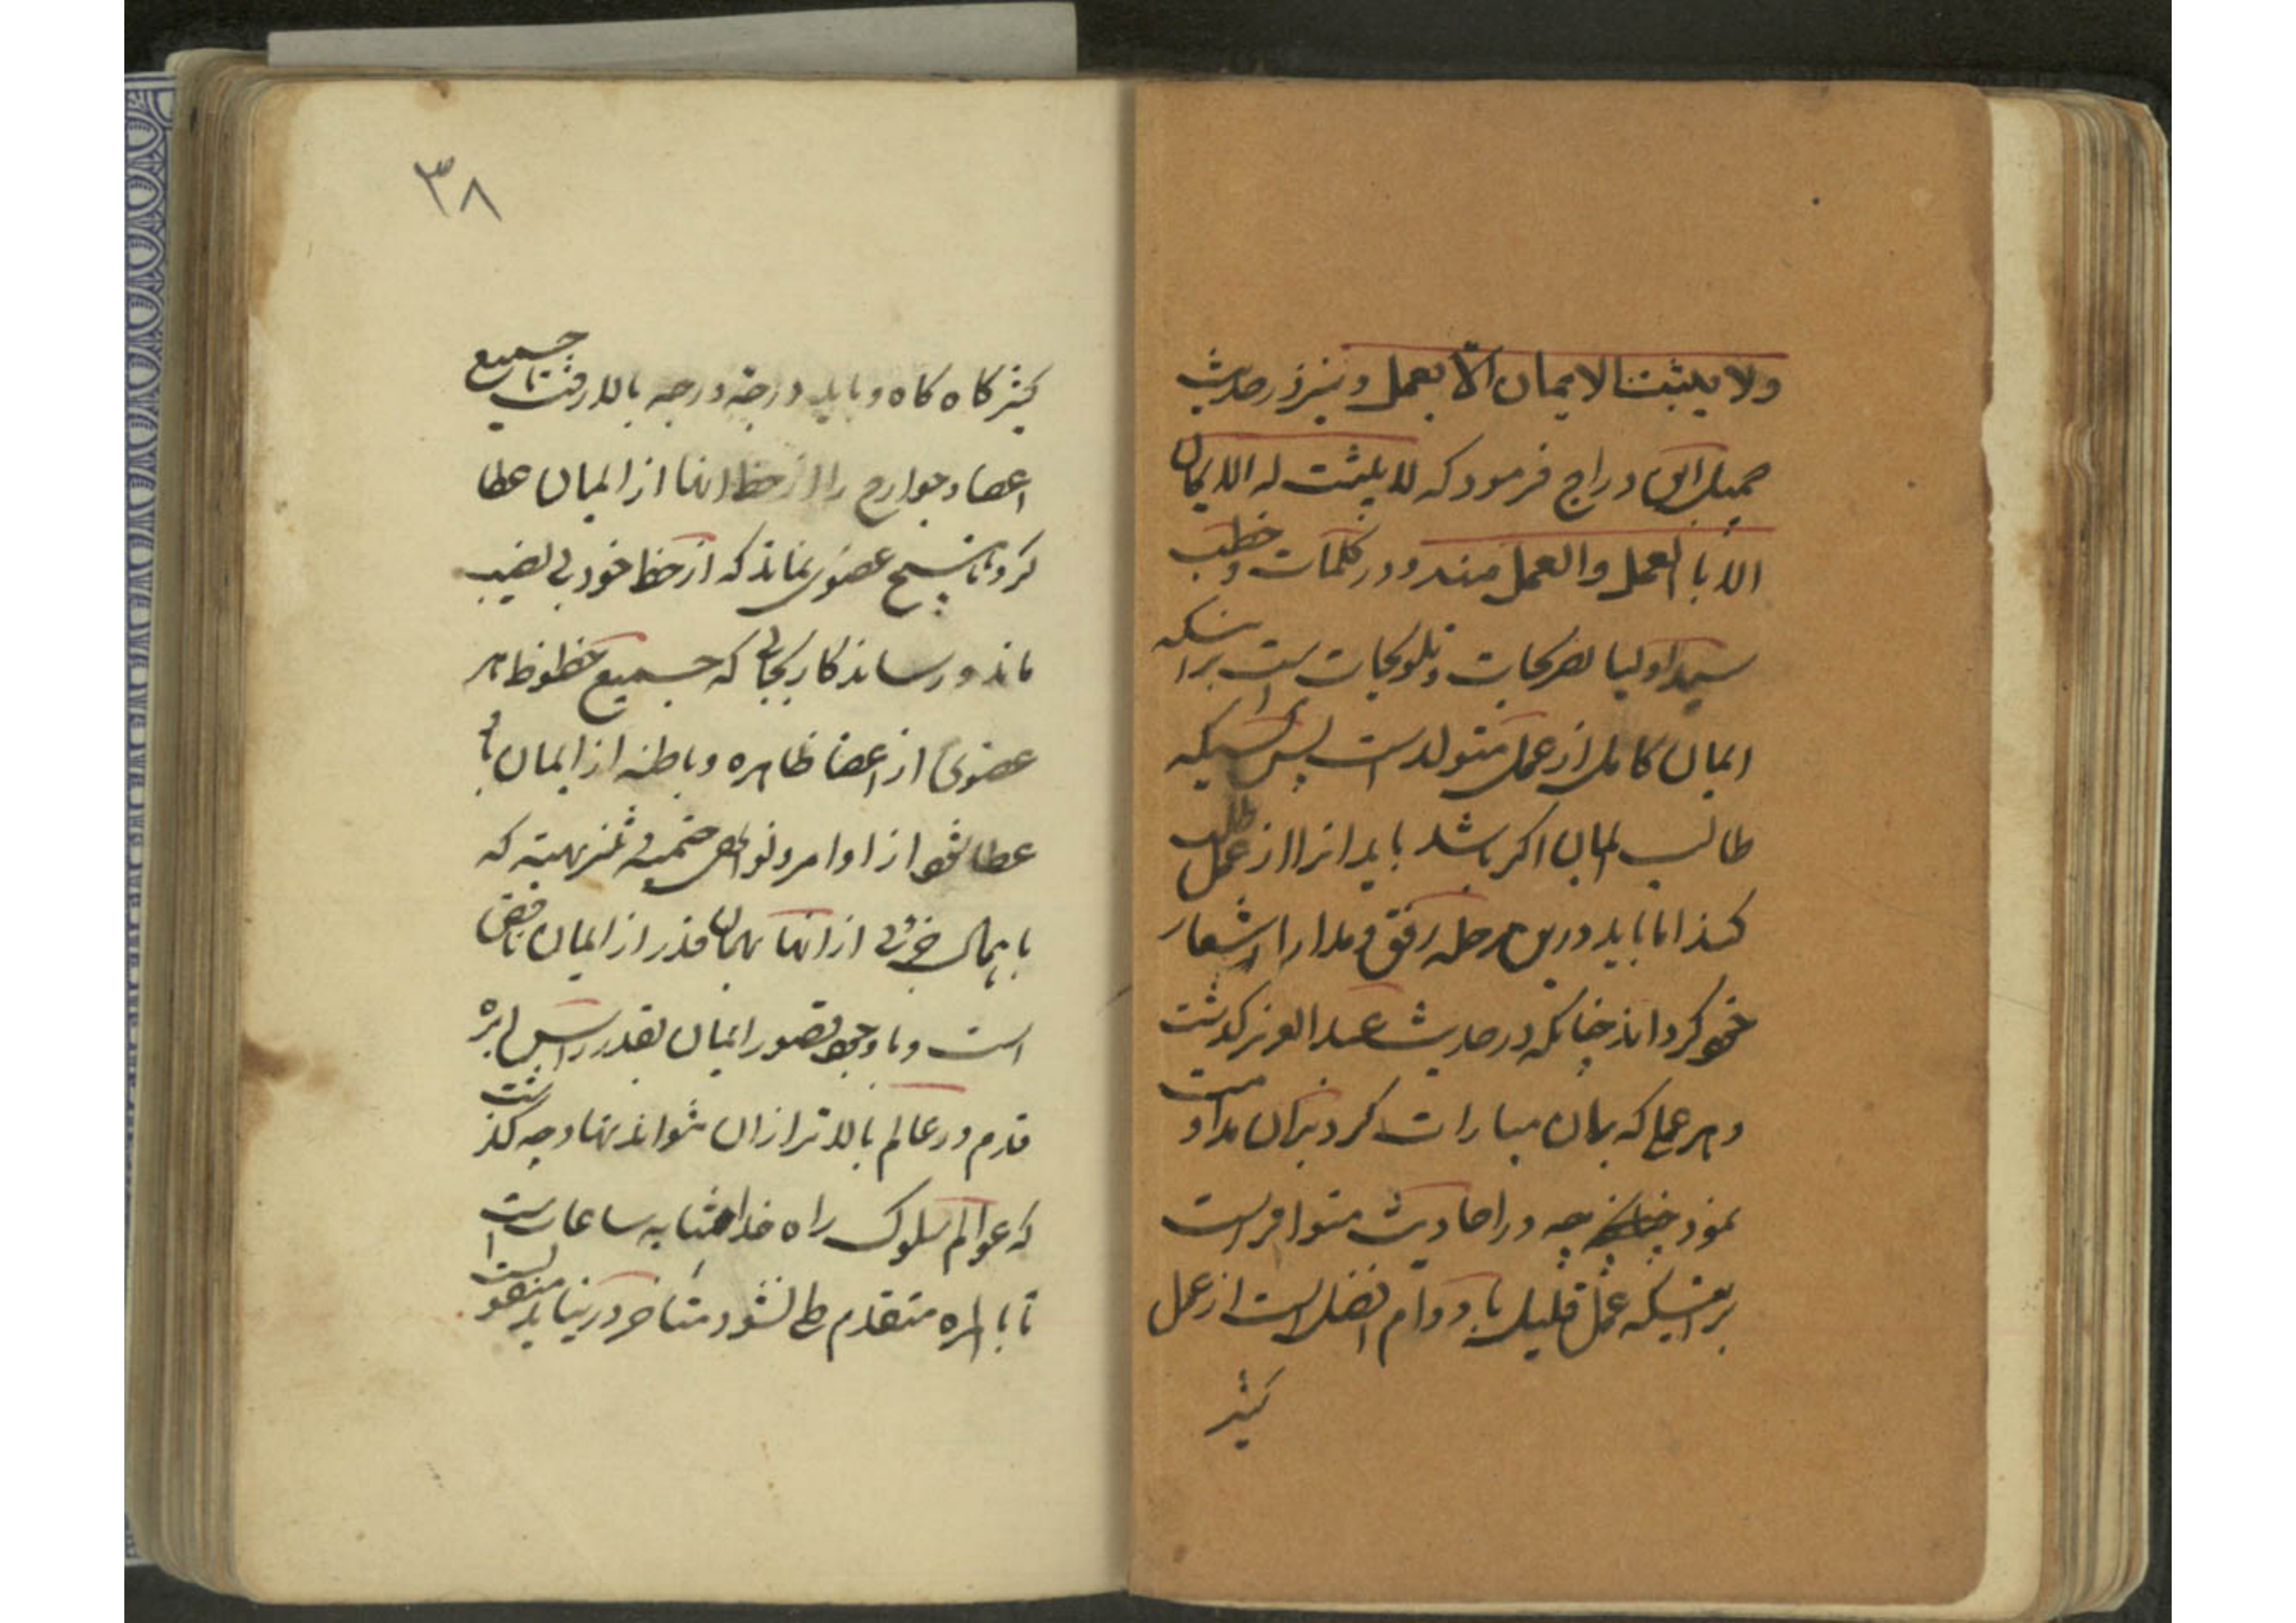 ولا یثبت الایمان الّا بعمل و نیز در حدیث
جمیل ابن دراج فرمود که لا یثبت له الایمان
الا بالعمل والعمل منه و در کلمات و خطب
سید اولیا تصریحات و تلویحات است براینکه
ایمان کامل از عمل متولد است پس کسیکه
طالب ایمان اکبر باشد باید انرا از عمل طلب
کند اما باید درین مرحله رفق و مدارا را شعار
خود کرداند چنانکه در حدیث عبد العزیز کذشت
و هر عملی که بدان مبارات کرد بران مداومت
نمود چه در احادیث متوافر است
براینکه عمل قلیل با دوام افضل است از عمل
کثیر
۳۸
کثیر کاه کاه و باید درجه درجه بالا رفت تا جمیع
اعضا و جوارح را از حظ انها از ایمان عطا
کرد تا هیچ عضوی نماند که از حظ خود بی نصیب
ماند و رساند کار بجائی که جمیع حظوظ هر
عضوی از اعضا ظاهره و باطنه از ایمان باو
عطا شود از اوامر و نواهی حتمیه و تنزیهیه که
باهمال جزئی از انها بهمان قدر از ایمان ناقص
است و با وجود قصور ایمان بقدر راس ابره
قدم در عالم بالاتر ازان نتواند نهاد چه کذشت
که عوالم سلوک راه خدا بمثابه ساعات است
تا بالمره متقدم طی نشود متاخر در نیاید منقول است